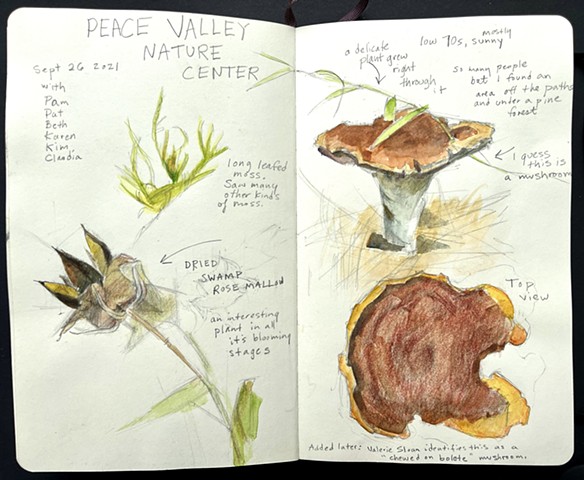 PEACE VALLEY
NATURE
CENTER
Sept 26 2021
with
Pam
Pat
Beth
Karen
Kim
Claudia
long leafed
moss.
Saw many
other kinds
of moss.
DRIED
SWAMP
ROSE MALLOW
an interesting
plant in all
it's blooming
stages
a delicate
plant grew
right
through
it
low 70s, mostly
sunny
so many people
but I found an
area off the paths
and under a pine
forest
I guess
this is
a mushroom
Top
view
Added later: Valerie Sloan identifies this as a
"chewed on bolete" mushroom.